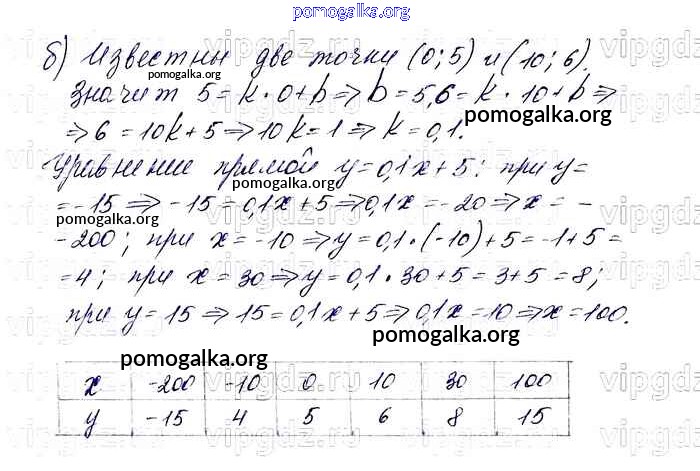 pomogalka.org
б) Известны две точки (0; 5) и (10; 6).
pomogalka.org
Значит 5 = k · 0 + b ⇒ b = 5, 6 = k · 10 + b ⇒
⇒ 6 = 10k + 5 ⇒ 10k = 1 ⇒ k = 0,1.
pomogalka.org
Уравнение прямой y = 0,1x + 5; при y =
pomogalka.org
= -15 ⇒ -15 = 0,1x + 5 ⇒ 0,1x = -20 ⇒ x = -
pomogalka.org
-200; при x = -10 ⇒ y = 0,1 · (-10) + 5 = -1 + 5 =
= 4; при x = 30 ⇒ y = 0,1 · 30 + 5 = 3 + 5 = 8;
при y = 15 ⇒ 15 = 0,1x + 5 ⇒ 0,1x = 10 ⇒ x = 100.
pomogalka.org
pomogalka.org
x -200 -10 0 10 30 100
y -15 4 5 6 8 15